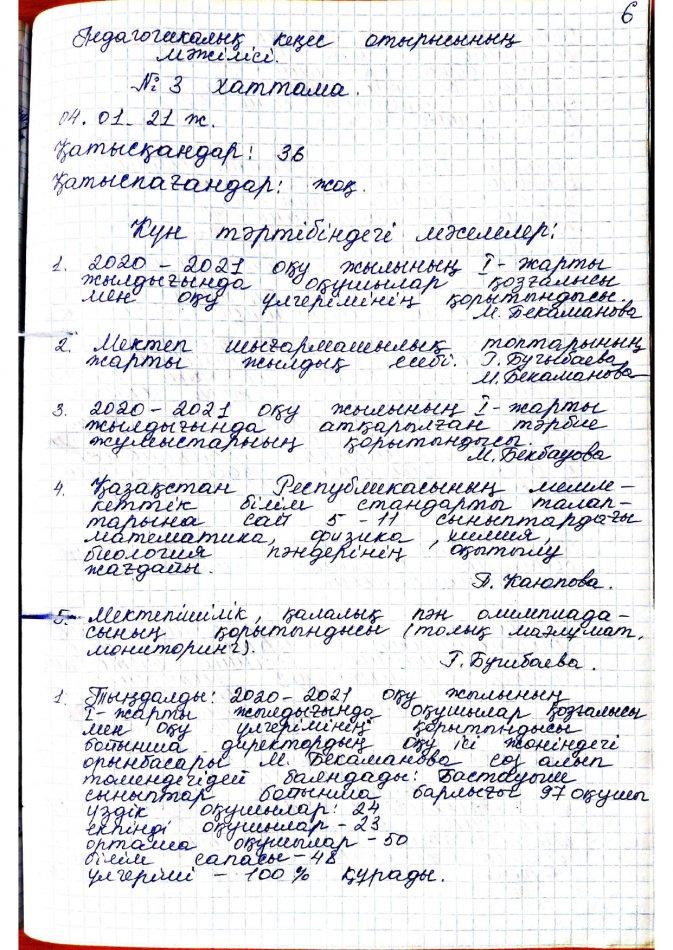 6
Педагогикалық кеңес отырысының
мәжілісі.
№ 3 хаттама.
04. 01. 21 ж.
Қатысқандар: 36
Қатыспағандар: жоқ.
Күн тәртібіндегі мәселелер:
1. 2020 - 2021 оқу жылының I - жарты
жылдығында оқушылар қозғалысы
мен оқу үлгерімінің қорытындысы.
М. Бекаманова
2. Мектеп шығармашылық топтарының
жарты жылдық есебі. Г. Бугыбаева
М. Бекаманова
3. 2020 - 2021 оқу жылының I - жарты
жылдығында атқарылған тәрбие
жұмыстарның қорытындысы.
М. Бекбауова
4. Қазақстан Республикасының мемле-
кеттік білім стандарты талап-
тарына сай 5 - 11 сыныптардағы
математика, физика, химия,
биология пәндерінің оқытылу
жағдайы.
П. Каюпова.
5. Мектепішілік, қалалық пән олимпиада-
сының қорытындысы (толық мәлұмат,
мониторинг).
Г. Бугибаева.
1. Тыңдалды: 2020 - 2021 оқу жылының
I - жарты жылдығында оқушылар қозғалысы
мен оқу үлгерімінің қорытындысы
бойынша директордың оқу ісі жөніндегі
орынбасары М. Бекаманова сөз алып
төмендегідей баяндады: Бастауыш
сыныптар бойынша барлығы 97 оқушы
үздік оқушылар: 24
екпінді оқушылар - 23
орташа оқушылар - 50
білім сапасы - 48
үлгерімі - 100 % құрады.